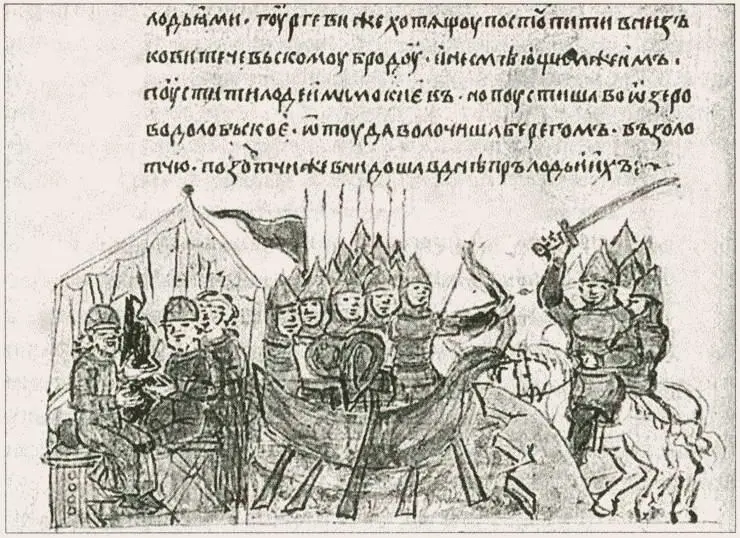 лодьѧми · гоургеви же хотѧщоу постоупити внизъ
ко витечевьскомоу бродоу · и не смѣющим же имъ ·
поустити лодеи мимо києвъ · но поустиша во ѡзеро
в долобьскоє · ѿтоуда волочиша берегомъ · въ золо
тчю · по золотчи же внидоша в днѣпръ лодьи ихъ